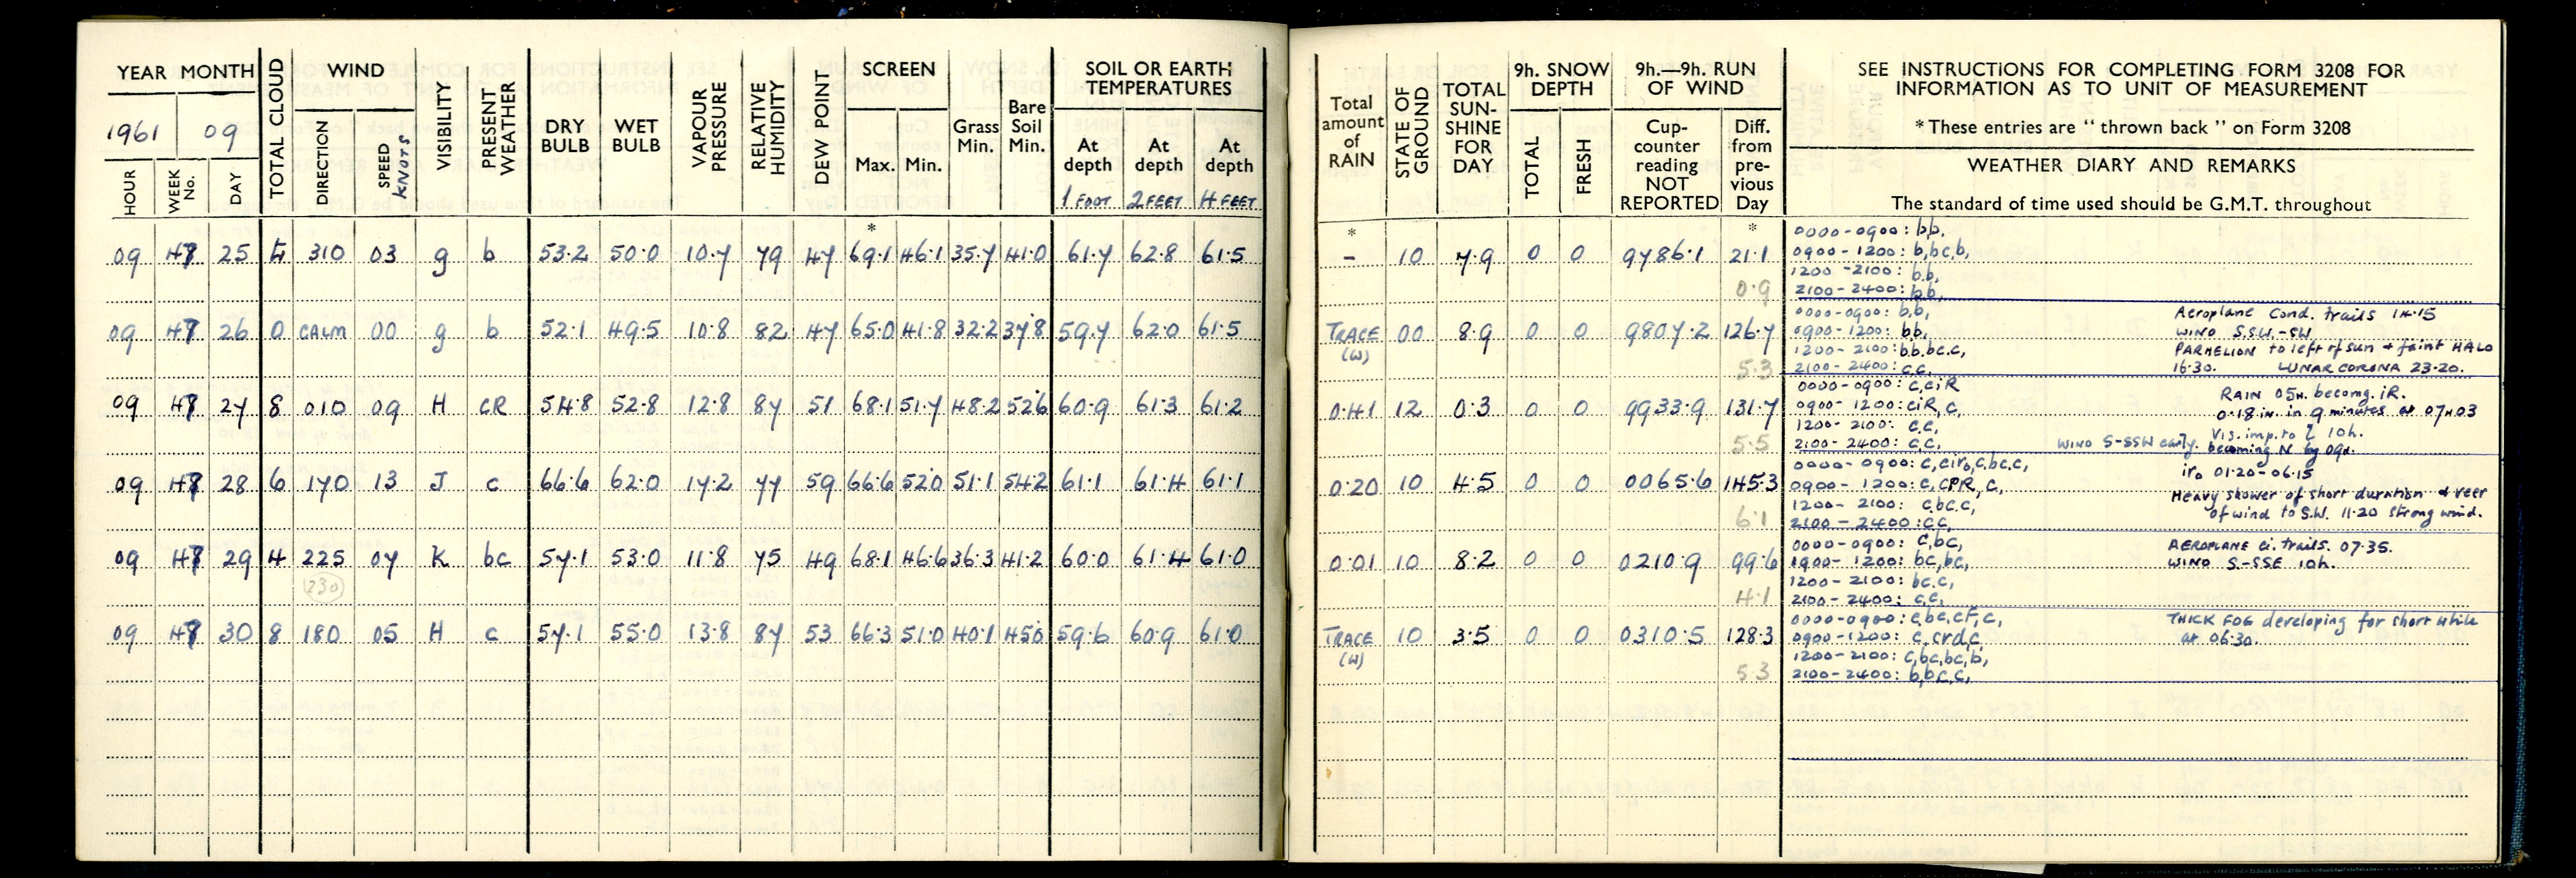 YEAR MONTH TOTAL CLOUD WIND VISIBILITY PRESENT WEATHER DRY BULB WET BULB VAPOUR PRESSURE RELATIVE HUMIDITY DEW POINT SCREEN Grass Min. Bare Soil Min. SOIL OR EARTH TEMPERATURES
1961 09
HOUR WEEK No. DAY DIRECTION SPEED KNOTS Max. Min. At depth 1 FOOT At depth 2 FEET At depth 4 FEET
*
09 25 310 03 g b 53.2 50.0 10.7 79 47 69.1 46.1 35.7 41.0 61.7 62.8 61.5
09 26 0 CALM 00 g b 52.1 49.5 10.8 82 47 65.0 41.8 32.2 37.8 59.7 62.0 61.5
09 27 8 010 09 H CR 54.8 52.8 12.8 87 51 68.1 51.7 48.2 52.6 60.9 61.3 61.2
09 28 6 170 13 J c 66.6 62.0 17.2 77 59 66.6 52.0 51.1 54.2 61.1 61.4 61.1
09 29 4 225 07 K bc 57.1 53.0 11.8 75 49 68.1 46.6 36.3 41.2 60.0 61.4 61.0
(230)
09 30 8 180 05 H c 57.1 55.0 13.8 87 53 66.3 51.0 40.1 45.0 59.6 60.9 61.0
Total amount of RAIN STATE OF GROUND TOTAL SUN-SHINE FOR DAY 9h. SNOW DEPTH 9h.—9h. RUN OF WIND
TOTAL FRESH Cup-counter reading NOT REPORTED Diff. from pre-vious Day
SEE INSTRUCTIONS FOR COMPLETING FORM 3208 FOR
INFORMATION AS TO UNIT OF MEASUREMENT
* These entries are " thrown back " on Form 3208
WEATHER DIARY AND REMARKS
The standard of time used should be G.M.T. throughout
* *
- 10 7.9 0 0 9786.1 21.1
0.9
0000-0900: b,b,
0900-1200: b,bc,b,
1200-2100: b,b,
2100-2400: b,b,
TRACE (W) 00 8.9 0 0 9807.2 126.7
5.3
0000-0900: b,b, Aeroplane Cond. trails 14.15
0900-1200: b,b, WIND S.S.W.-SW.
1200-2100: b,b,bc,c, PARHELION to left of sun + faint HALO
2100-2400: c,c, 16.30. LUNAR CORONA 23.20.
0.41 12 0.3 0 0 9933.9 131.7
5.5
0000-0900: c,ciR RAIN 05H. becomg. iR.
0900-1200: ciR, c, 0.18 in. in 9 minutes at 07H03
1200-2100: c,c, Vis. imp. to 10h.
2100-2400: c,c, WIND S-SSW early. becoming N by 09h.
0.20 10 4.5 0 0 0065.6 145.3
6.1
0000-0900: c,cir₀,c,bc,c, ir₀ 01.20-06.15
0900-1200: c,CPR, c, Heavy shower of short duration & veer
1200-2100: c,bc,c, of wind to S.W. 11.20 strong wind.
2100-2400: c,c,
0.01 10 8.2 0 0 0210.9 99.6
4.1
0000-0900: c,bc, AEROPLANE ci. trails. 07.35.
0900-1200: bc,bc, WIND S-SSE 10h.
1200-2100: bc,c,
2100-2400: c,c,
TRACE (W) 10 3.5 0 0 0310.5 128.3
5.3
0000-0900: c,bc,cF,c, THICK FOG developing for short while
0900-1200: c,crd,c, at 06.30.
1200-2100: c,bc,bc,b,
2100-2400: b,bc,c,